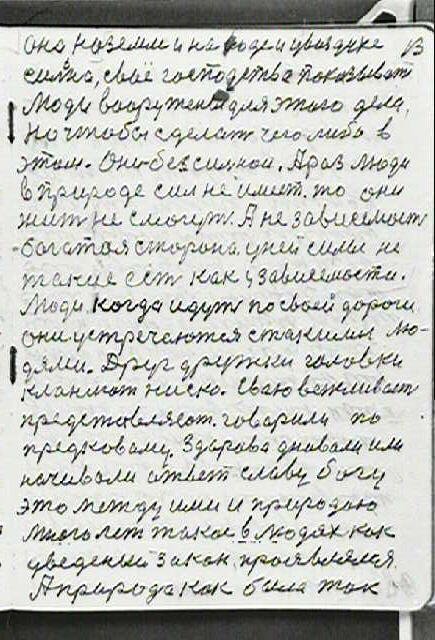 она на земли и на воде и увоздухе 13
силна, своё господства показыват
Люди вооружены для этого дела,
Но чтобы сделат чего либо в
этом. Они безсилнои. А раз люди
в природе сил не имеет. то они
жит не смогут. А не зависемост
богатая сторона, у ней силы не
такие ест как у зависемости.
Люди когда идут по своей дороги
они устречаются стакими лю-
дями. Друг дружки головки
кланяют ниско. Сваю вежливаст
представляют. говорили по
предковаму. Здарова дневали или
начивали ответ славу богу
это между ими и природаю
много лет такое в людях как
уведеный закон, проявлялся.
А природа как была так